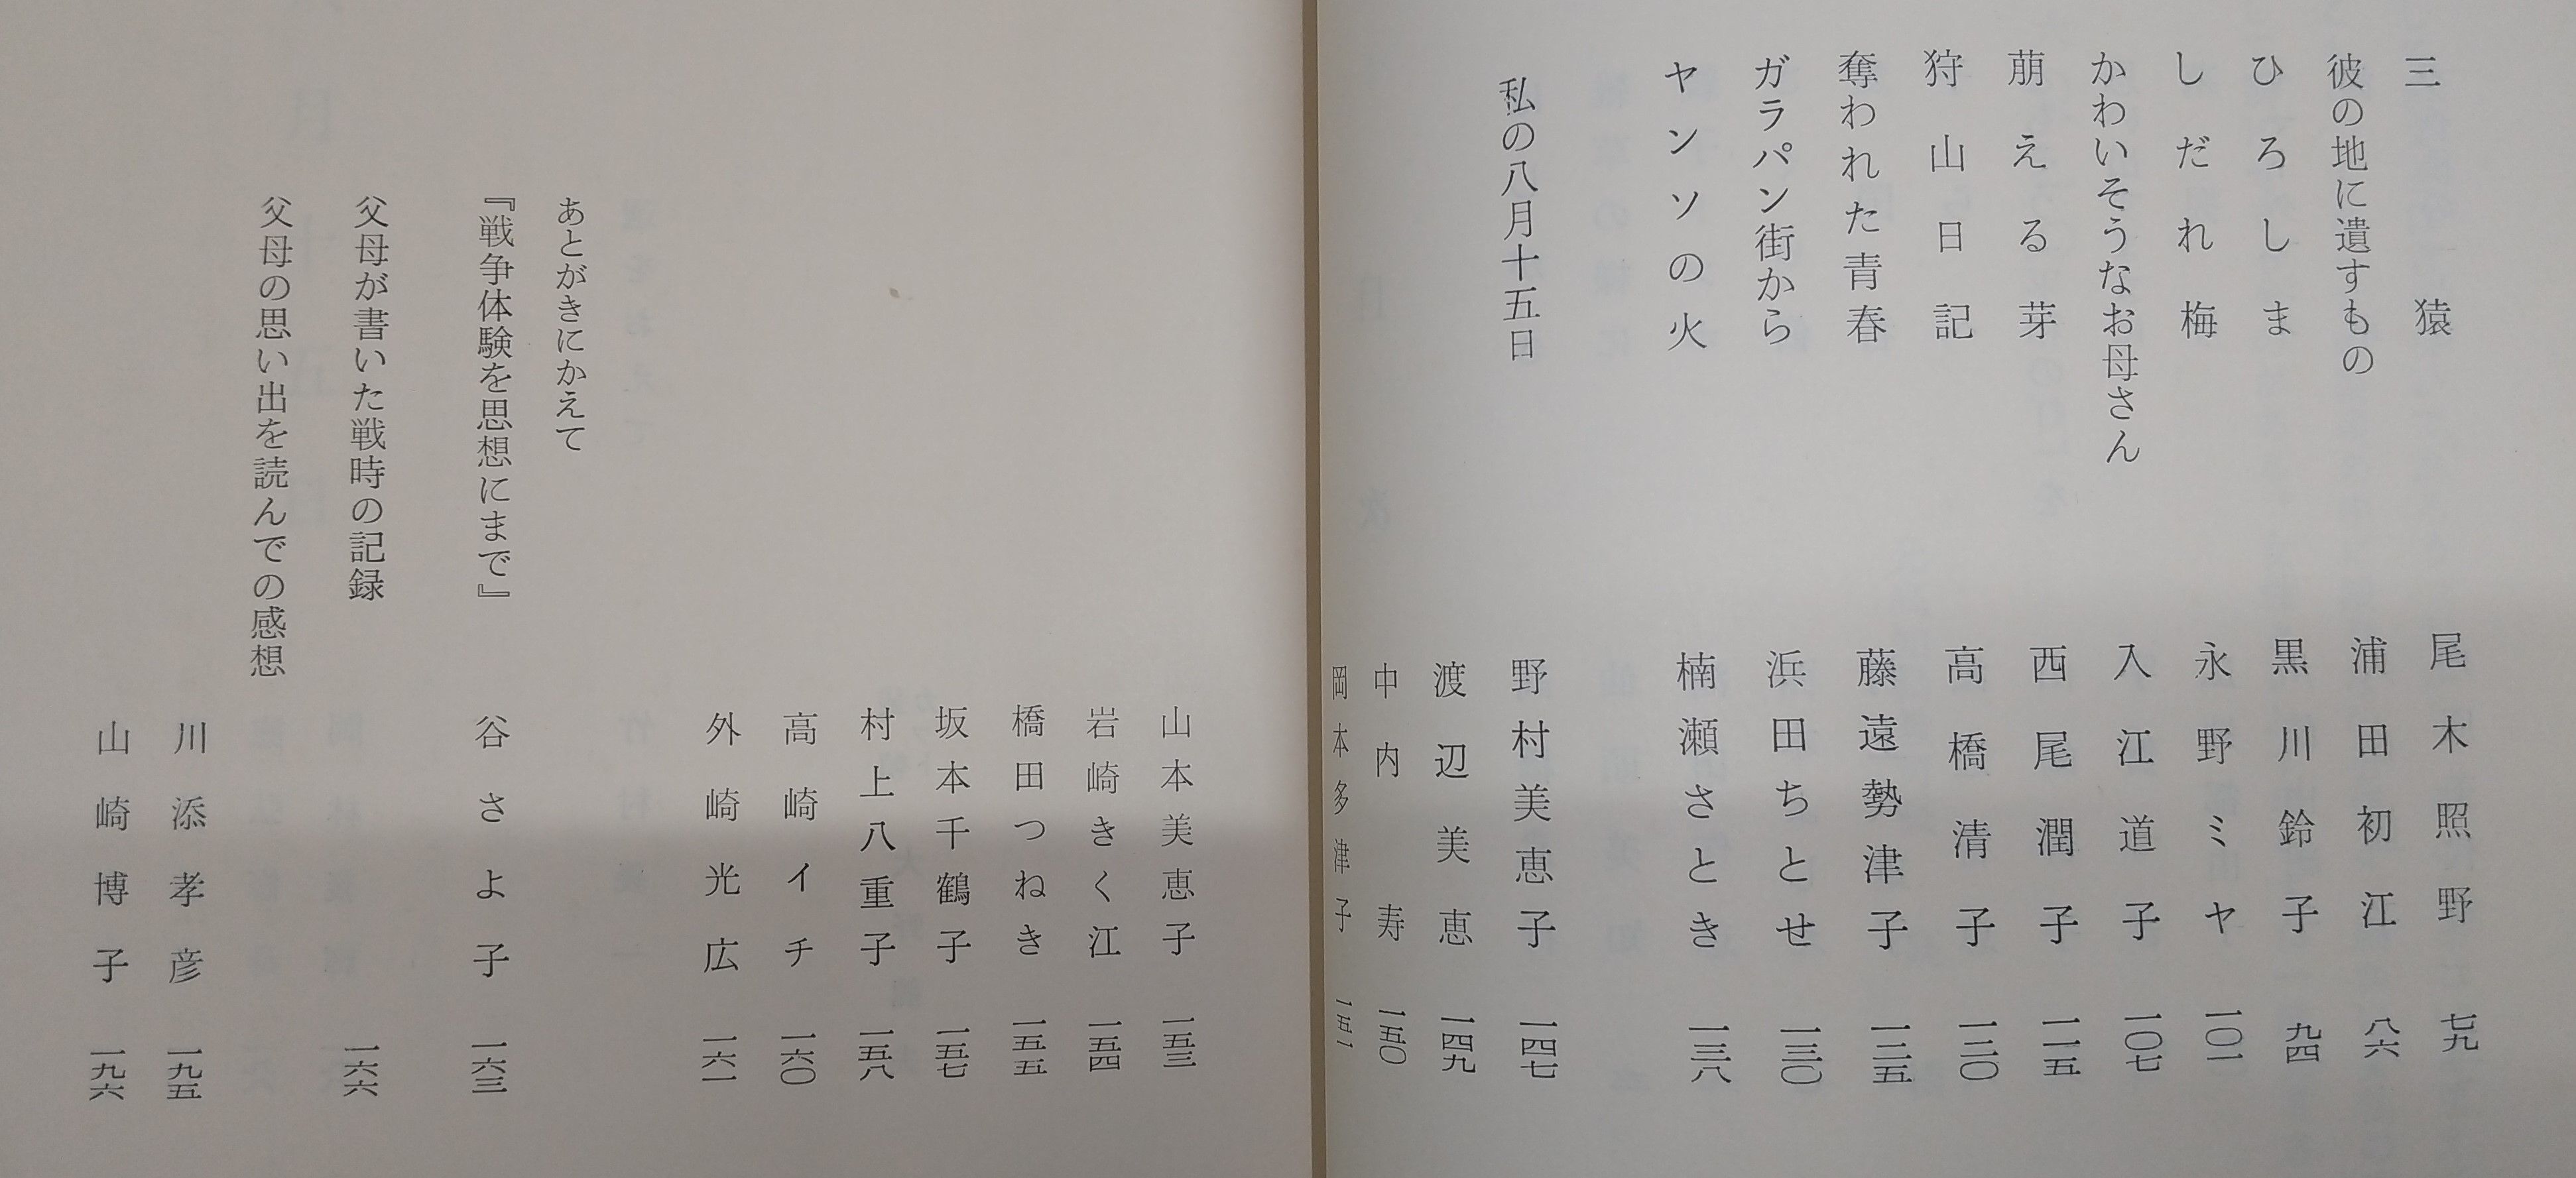 三猿 尾木照野 七九
彼の地に遺すもの 浦田初江 八六
ひろしま 黒川鈴子 九四
しだれ梅 永野ミヤ 一〇一
かわいそうなお母さん 入江道子 一〇七
萠える芽 西尾潤子 一一五
狩山日記 高橋清子 一二〇
奪われた青春 藤遠勢津子 一二五
ガラパン街から 浜田ちとせ 一三〇
ヤンソの火 楠瀬さとき 一三八
私の八月十五日 野村美恵子 一四七
渡辺美恵 一四九
中内寿 一五〇
岡本多津子 一五一
山本美恵子 一五三
岩崎きく江 一五四
橋田つねき 一五五
坂本千鶴子 一五七
村上八重子 一五八
高崎イチ 一六〇
外崎光広 一六一
あとがきにかえて
『戦争体験を思想にまで』 谷さよ子 一六三
父母が書いた戦時の記録 一六六
父母の思い出を読んでの感想
川添孝彦 一九五
山崎博子 一九六